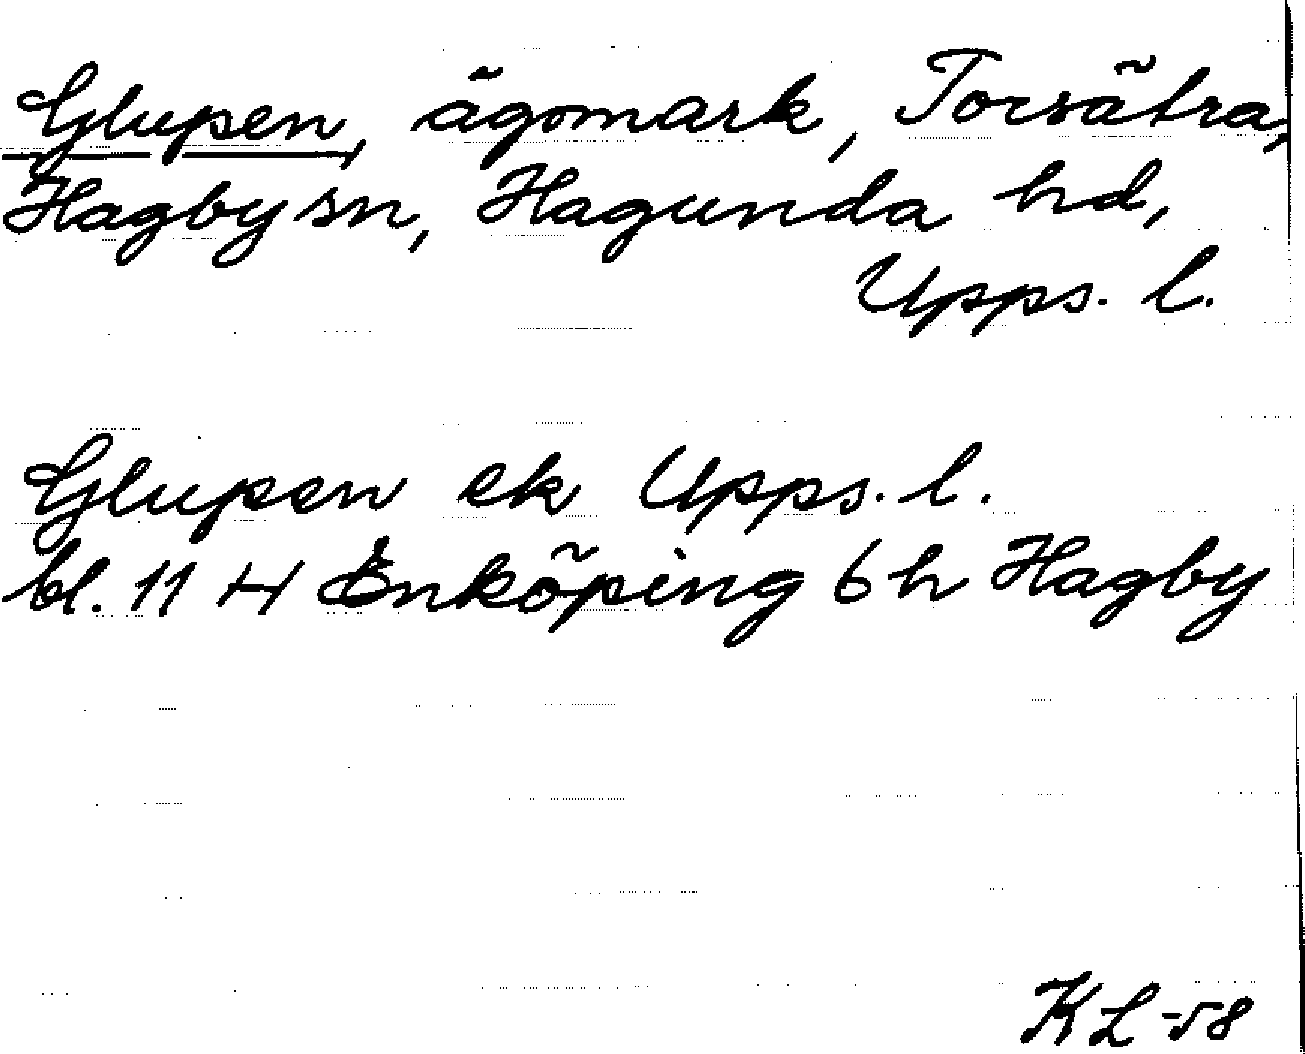 Glupen, ägomark, Torsätra,
Hagby sn, Hagunda hd,
Upps. l.
Glupen ek Upps. l.
bl. 11 H Enköping 6 h Hagby
KL -58